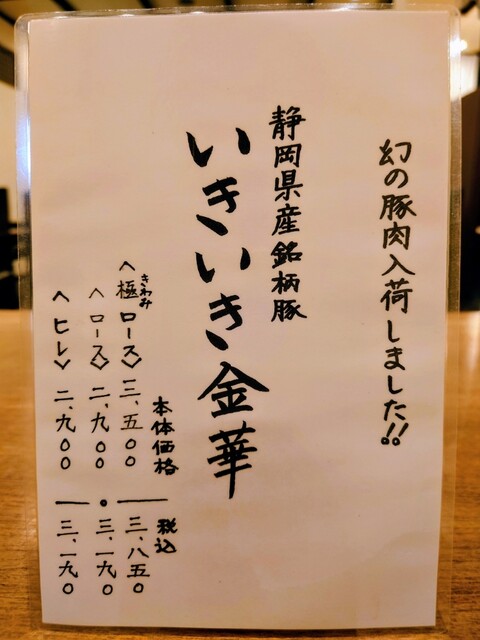 幻の豚肉入荷しました!!
静岡県産銘柄豚
いきいき金華
本体価格 税込
きわみ
〈極ロース〉三、五〇〇 ― 三、八五〇
〈ロース〉二、九〇〇 • 三、一九〇
〈ヒレ〉二、九〇〇 ― 三、一九〇